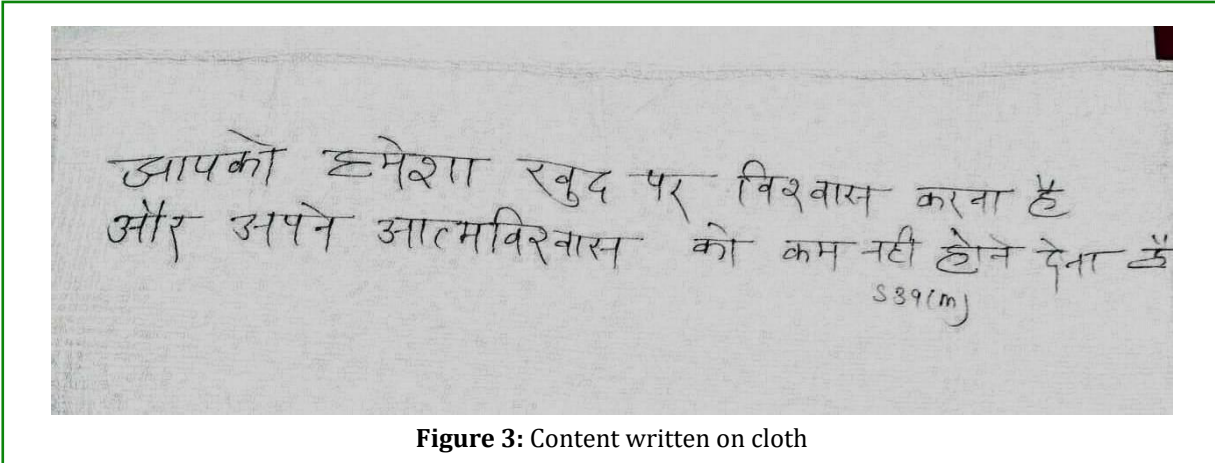 आपको हमेशा खुद पर विश्वास करना है
और अपने आत्मविश्वास को कम नही होने देना है
S39(m)
Figure 3: Content written on cloth